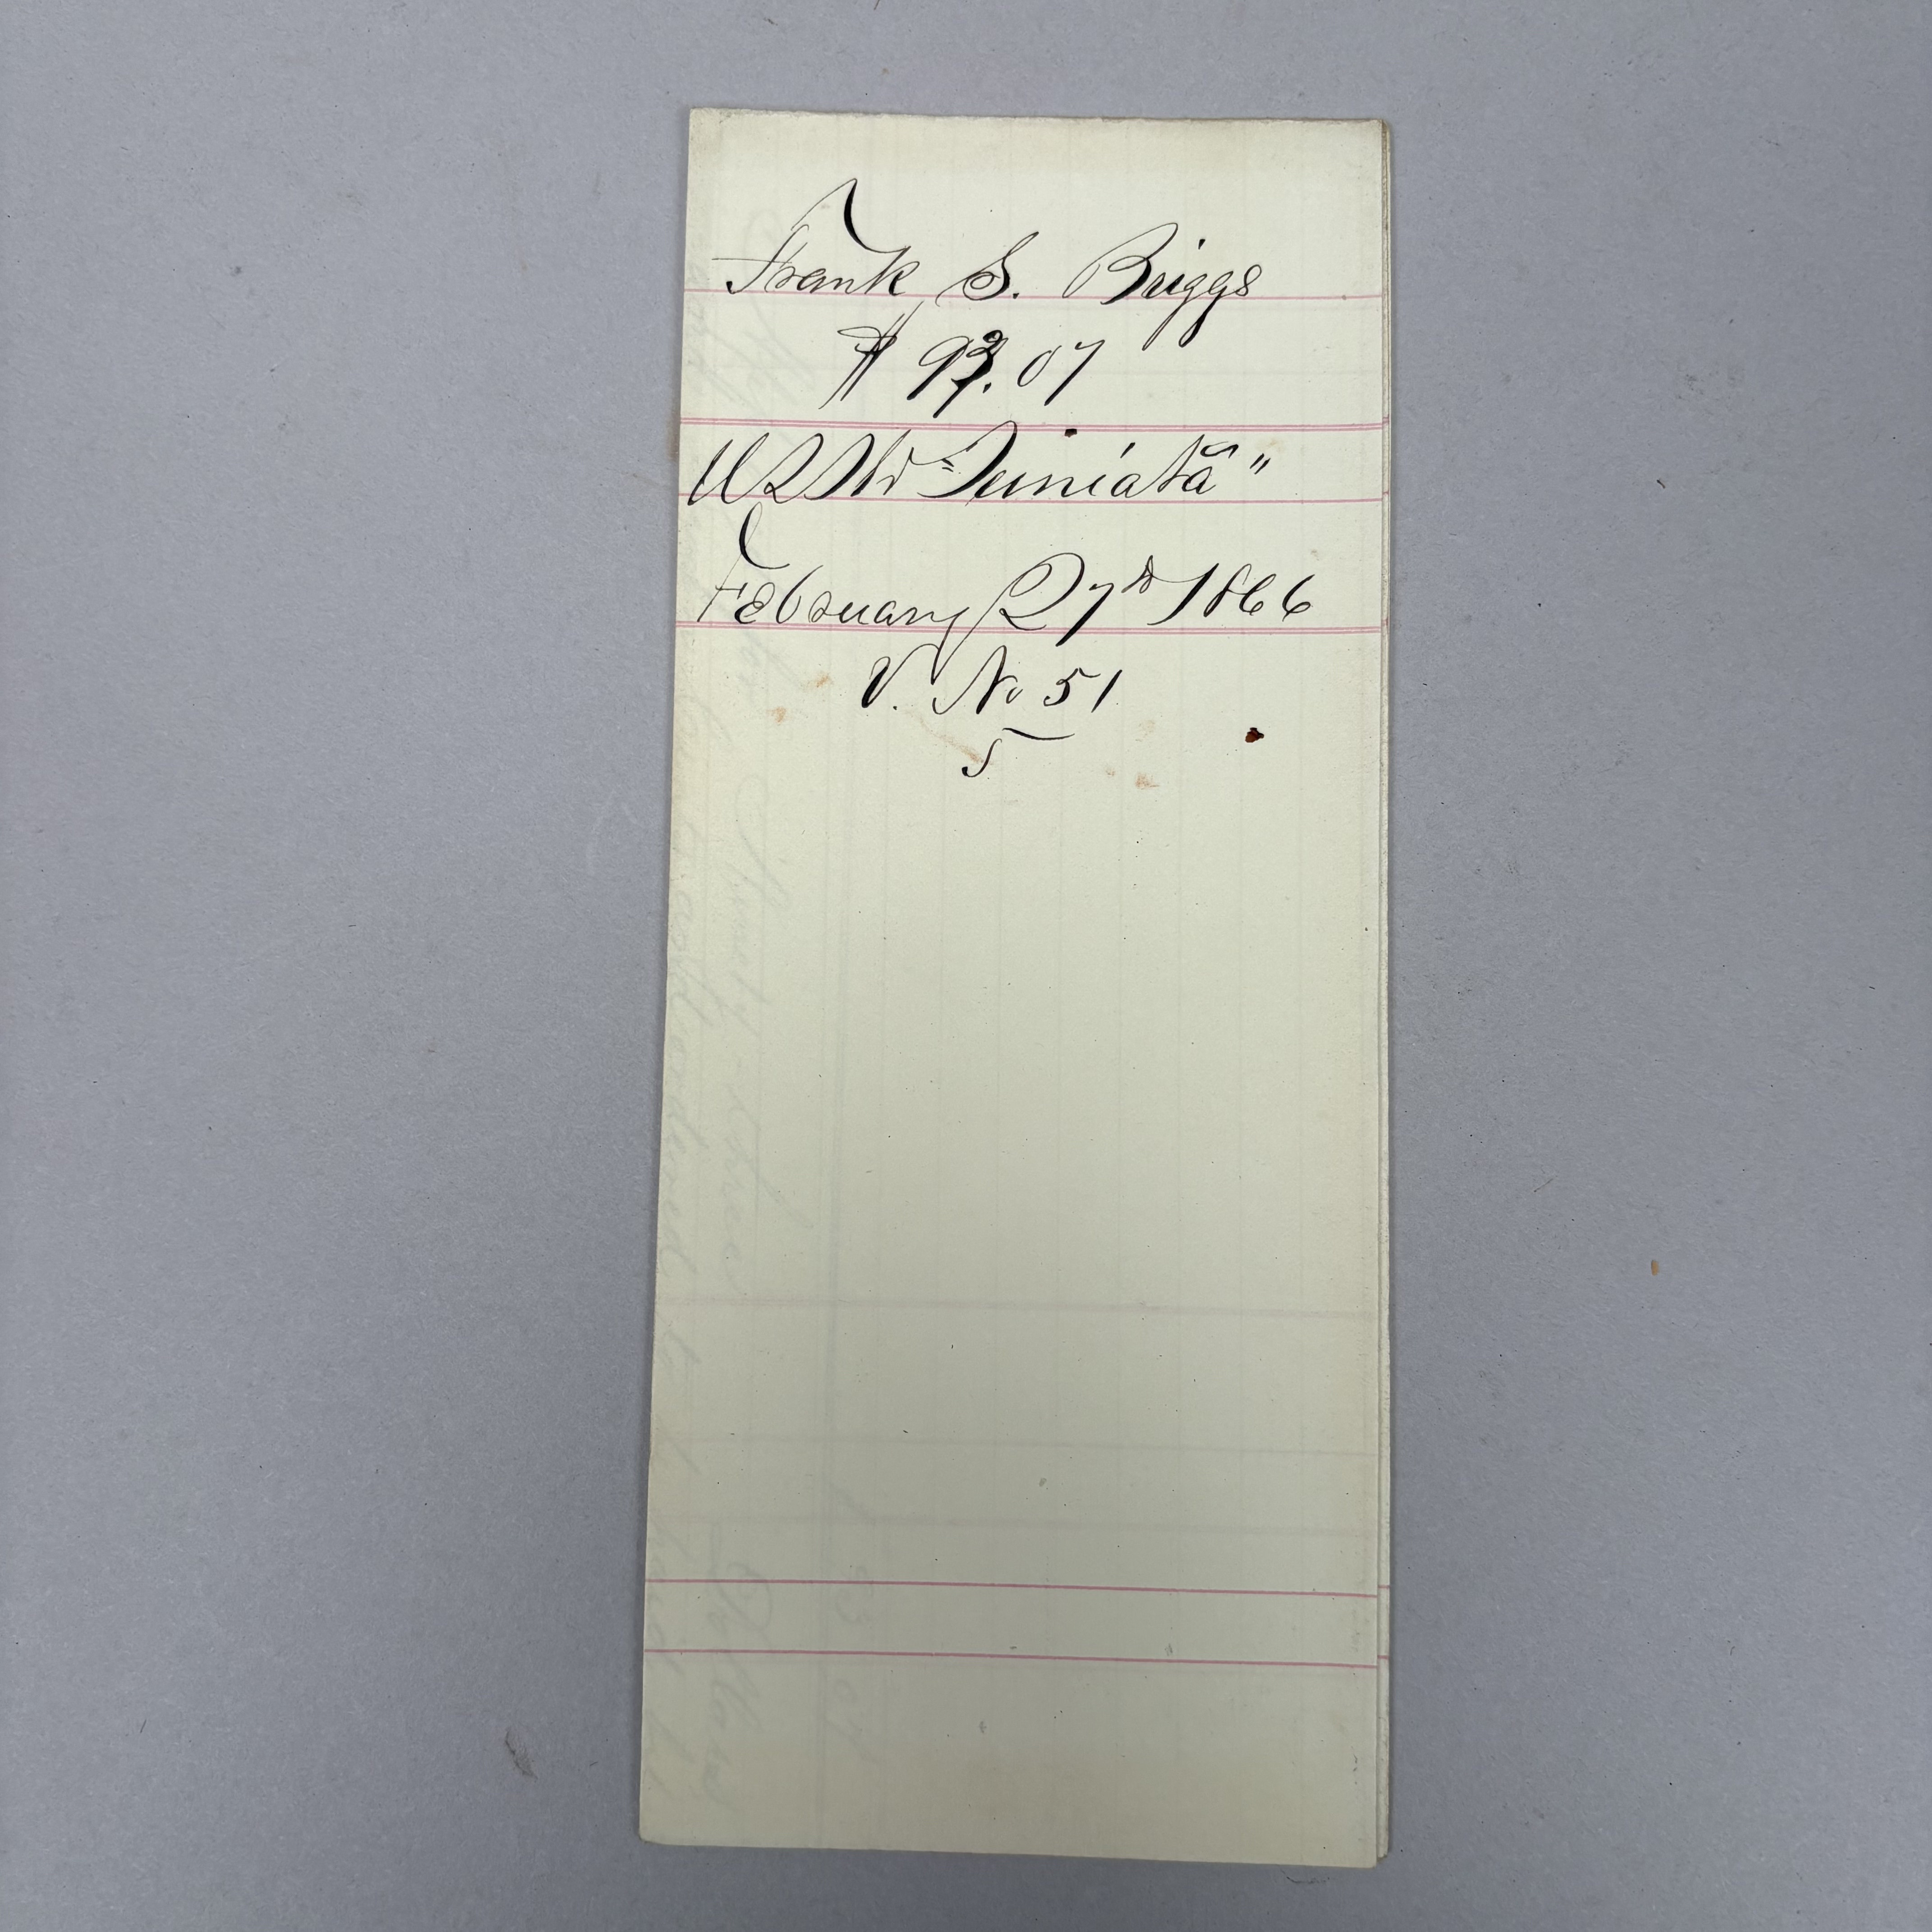 Frank S. Briggs
$ 93.07
U.S.Str "Juniata"
February 27th 1866
V. No 51
5